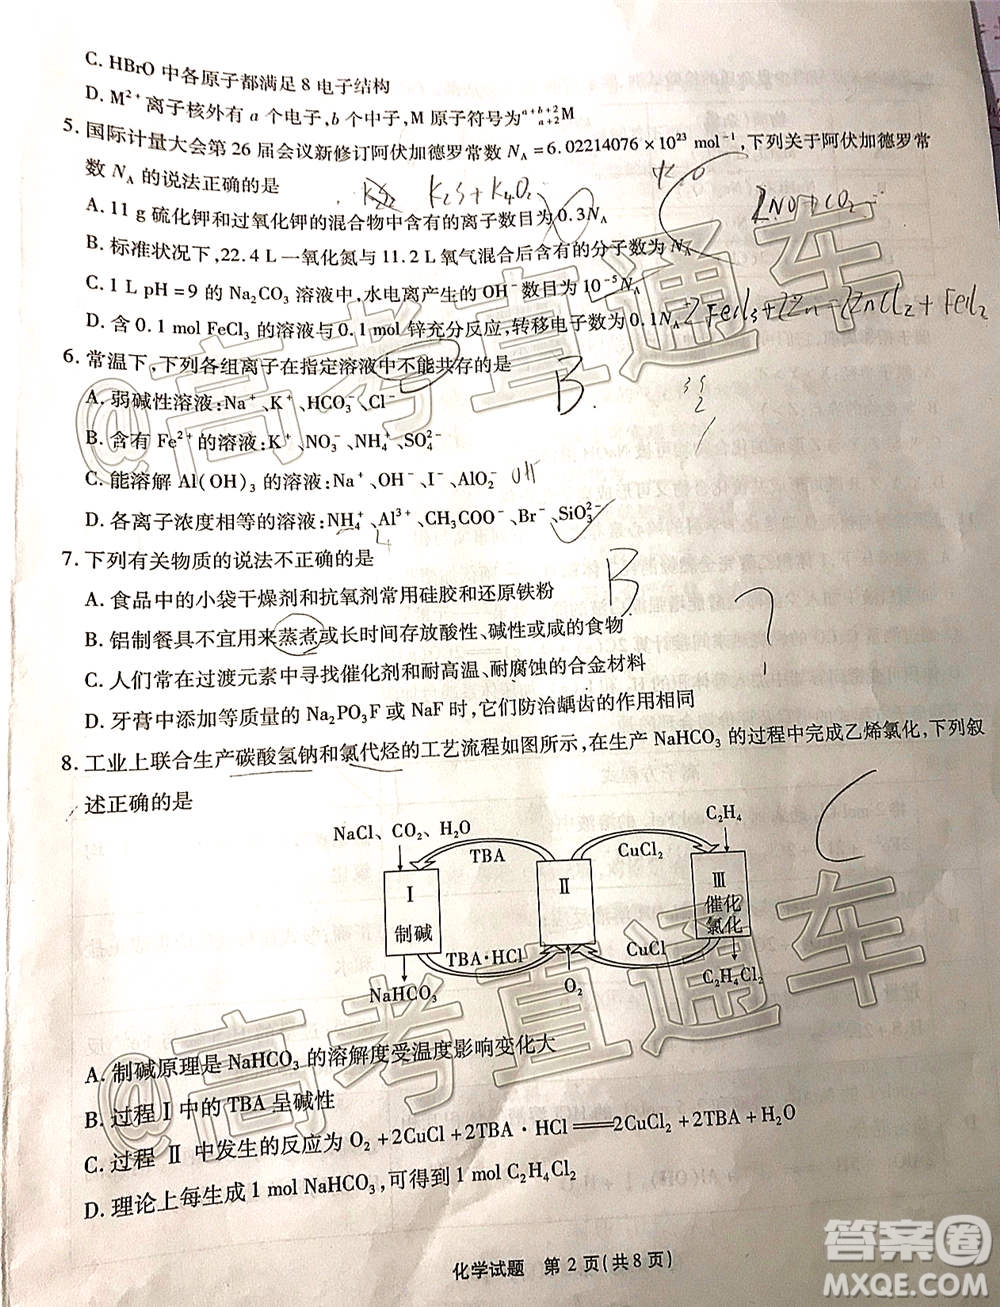 C. HBrO 中各原子都满足 8 电子结构
D. M²⁺离子核外有 a 个电子,b 个中子,M 原子符号为ᵃ⁺ᵇ⁺²ₐ₊₂M
5. 国际计量大会第 26 届会议新修订阿伏加德罗常数 N_A=6.02214076×10²³ mol⁻¹,下列关于阿伏加德罗常
数 N_A 的说法正确的是
K₂S+K₂O₂
A. 11 g 硫化钾和过氧化钾的混合物中含有的离子数目为 0.3N_A
B. 标准状况下,22.4 L 一氧化氮与 11.2 L 氧气混合后含有的分子数为 N_A
C. 1 L pH=9 的 Na₂CO₃ 溶液中,水电离产生的 OH⁻数目为 10⁻⁵N_A
D. 含 0.1 mol FeCl₃ 的溶液与 0.1 mol 锌充分反应,转移电子数为 0.1N_A
6. 常温下,下列各组离子在指定溶液中不能共存的是
B.
A. 弱碱性溶液:Na⁺、K⁺、HCO₃⁻、Cl⁻
B. 含有 Fe²⁺的溶液:K⁺、NO₃⁻、NH₄⁺、SO₄²⁻
C. 能溶解 Al(OH)₃ 的溶液:Na⁺、OH⁻、I⁻、AlO₂⁻
OH
D. 各离子浓度相等的溶液:NH₄⁺、Al³⁺、CH₃COO⁻、Br⁻、SiO₃²⁻
7. 下列有关物质的说法不正确的是
B.
A. 食品中的小袋干燥剂和抗氧剂常用硅胶和还原铁粉
B. 铝制餐具不宜用来蒸煮或长时间存放酸性、碱性或咸的食物
C. 人们常在过渡元素中寻找催化剂和耐高温、耐腐蚀的合金材料
D. 牙膏中添加等质量的 Na₂PO₃F 或 NaF 时,它们防治龋齿的作用相同
8. 工业上联合生产碳酸氢钠和氯代烃的工艺流程如图所示,在生产 NaHCO₃ 的过程中完成乙烯氯化,下列叙
述正确的是
C
NaCl、CO₂、H₂O
C₂H₄
TBA
CuCl₂
Ⅰ
制碱
Ⅱ
Ⅲ
催化
氯化
TBA·HCl
CuCl
NaHCO₃
O₂
C₂H₄Cl₂
A. 制碱原理是 NaHCO₃ 的溶解度受温度影响变化大
B. 过程Ⅰ中的 TBA 呈碱性
C. 过程 Ⅱ 中发生的反应为 O₂+2CuCl+2TBA·HCl══2CuCl₂+2TBA+H₂O
D. 理论上每生成 1 mol NaHCO₃,可得到 1 mol C₂H₄Cl₂
化学试题 第 2 页(共 8 页)
@高考直通车
@高考直通车
答案圈
MXQE.COM